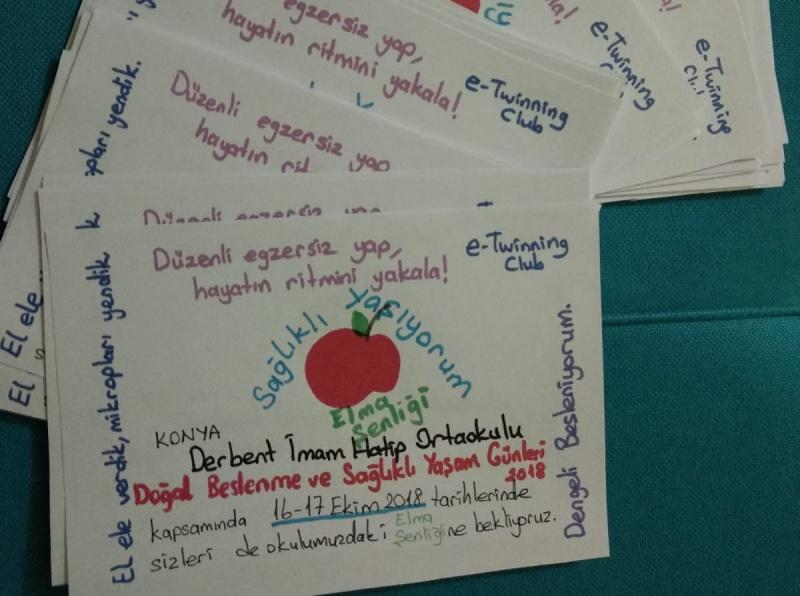 Düzenli egzersiz yap,
hayatın ritmini yakala!
e-Twinning
Club
Sağlıklı Yaşıyorum
Elma
Şenliği
El ele verdik, mikropları yendik
Dengeli Besleniyorum.
KONYA
Derbent İmam Hatip Ortaokulu
Doğal Beslenme ve Sağlıklı Yaşam Günleri
2018
kapsamında 16-17 Ekim 2018 tarihlerinde
sizleri de okulumuzdaki Elma Şenliğine bekliyoruz.
Düzenli egzersiz yap
hayatın
pları yendik.
El ele
egzersiz yap,
hayatın ritmini yakala!
e-Twinning
Club
El
e-Twinning
e-Twinning